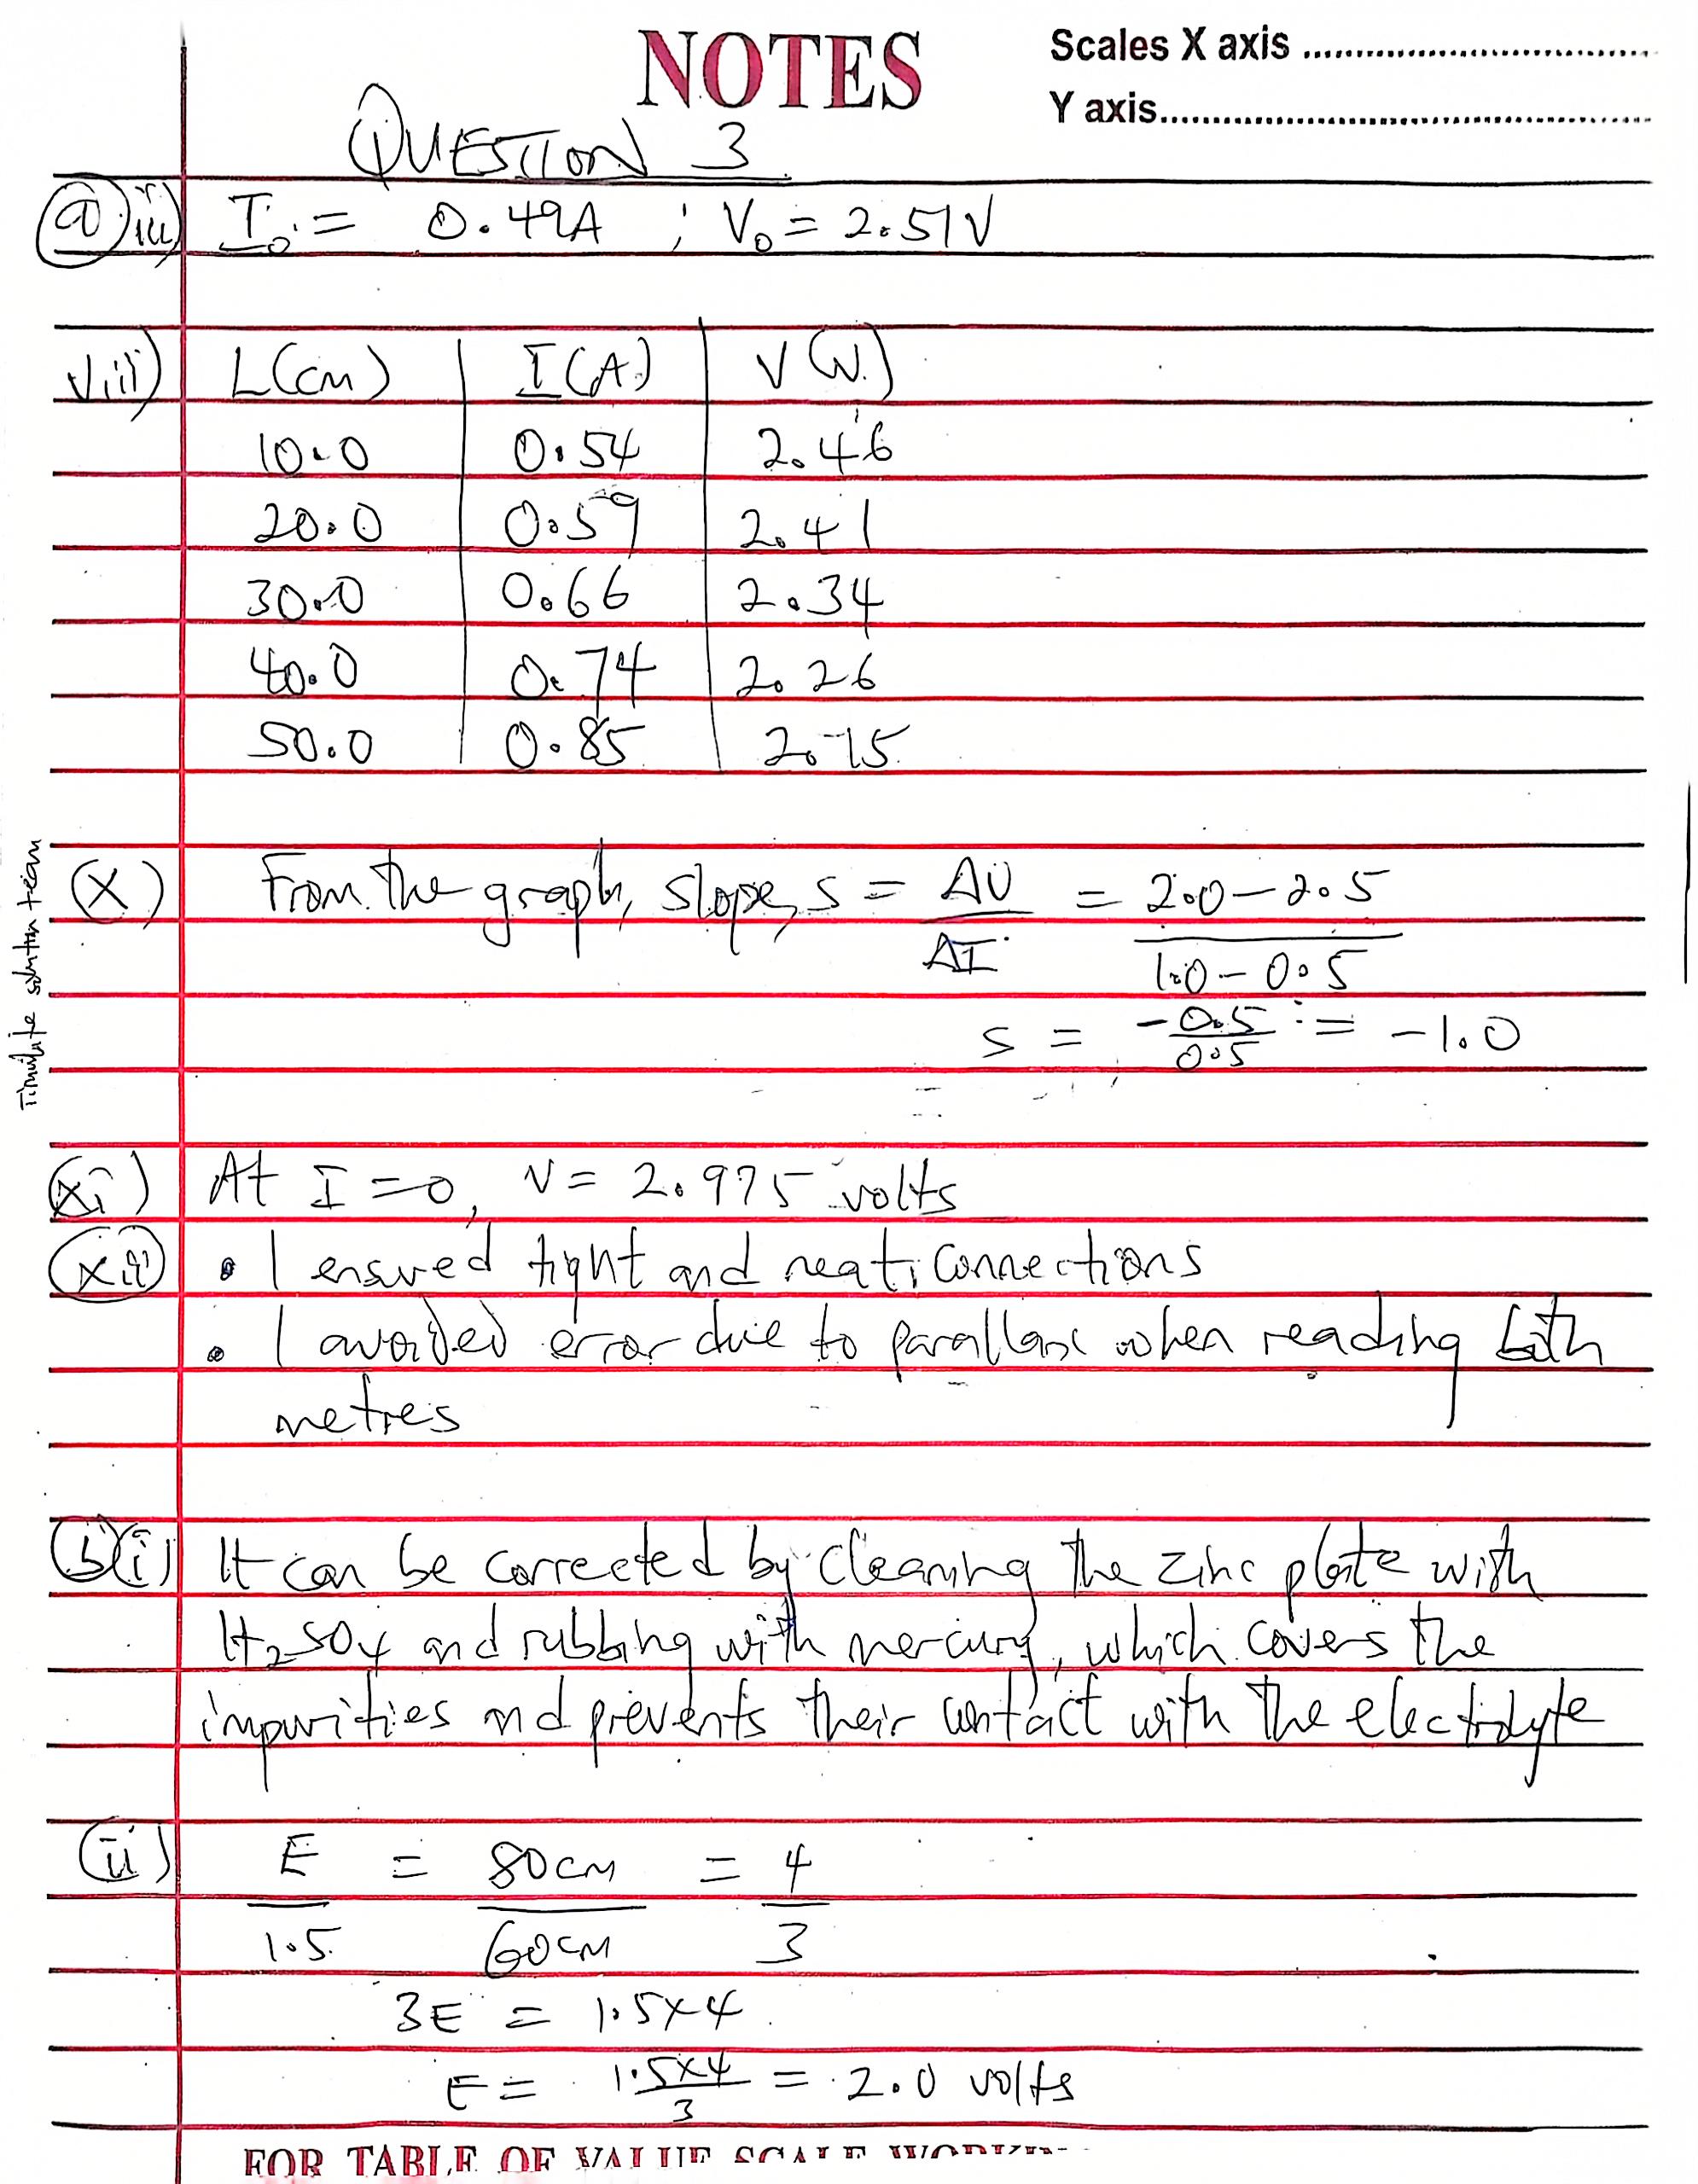 NOTES
Scales X axis ....................................
Y axis....................................................
QUESTION 3
(a) iii) I₀ = 0.49A ; V₀ = 2.51V
viii) L(cm) I(A) V(V)
10.0 0.54 2.46
20.0 0.59 2.41
30.0 0.66 2.34
40.0 0.74 2.26
50.0 0.85 2.15
(x) From the graph, slope, s = ΔV/ΔI = 2.0 - 2.5/1.0 - 0.5
s = -0.5/0.5 = -1.0
(xi) At I = 0, V = 2.975 volts
(xii) • I ensured tight and neat connections
• I avoided error due to parallax when reading both
metres
(b)(i) It can be corrected by cleaning the zinc plate with
H₂SO₄ and rubbing with mercury, which covers the
impurities and prevents their contact with the electrolyte
(ii) E/1.5 = 80cm/60cm = 4/3
3E = 1.5×4
E = 1.5×4/3 = 2.0 volts
Timilate solution team
FOR TABLE OF VALUE SCALE